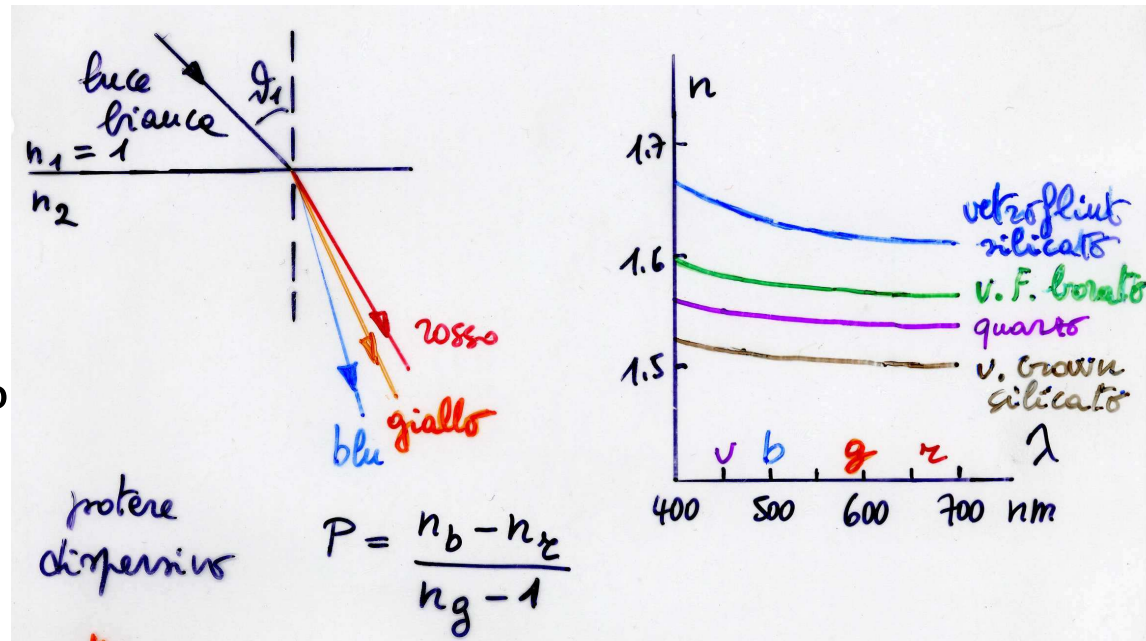 luce
bianca
ϑ1
n1 = 1
n2
rosso
giallo
blu
potere
dispersivo
P = (nb - nr) / (ng - 1)
n
1.7
1.6
1.5
vetro flint
silicato
v. F. borato
quarzo
v. crown
silicato
v b g r λ
400 500 600 700 nm